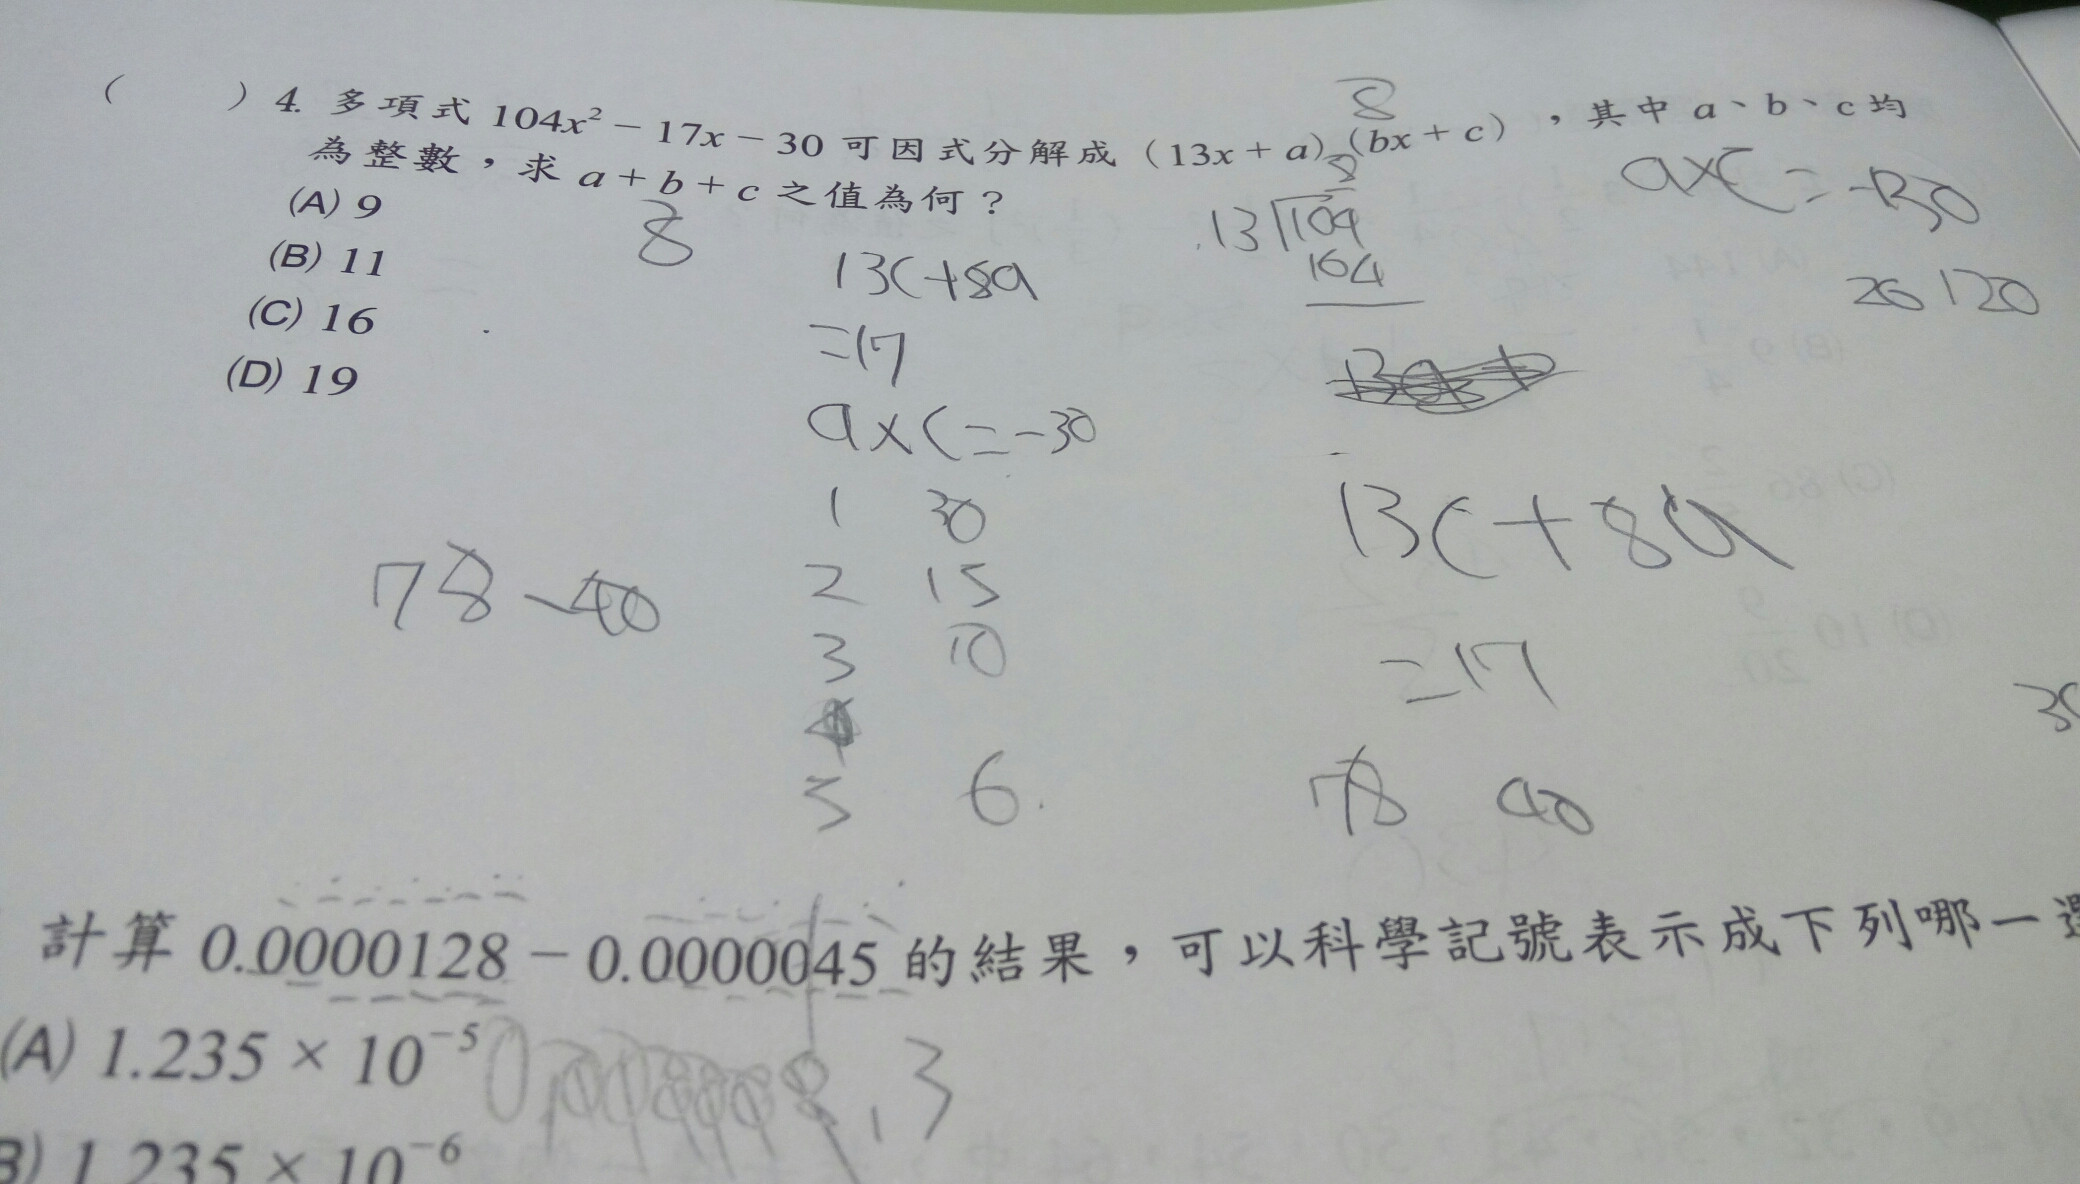 ( ) 4. 多項式 104x² − 17x − 30 可因式分解成 (13x + a) (bx + c) ，其中 a、b、c 均
為整數，求 a + b + c 之值為何？
(A) 9
(B) 11
(C) 16
(D) 19
8
8
13c+8a
=17
a×c=-30
1 30
2 15
3 10
5 6
78-40
8
13 104
104
a×c=-30
26 120
13c+8a
=17
78 40
計算 0.0000128 − 0.00000045 的結果，可以科學記號表示成下列哪一
(A) 1.235 × 10⁻⁵
B) 1.235 × 10⁻⁶